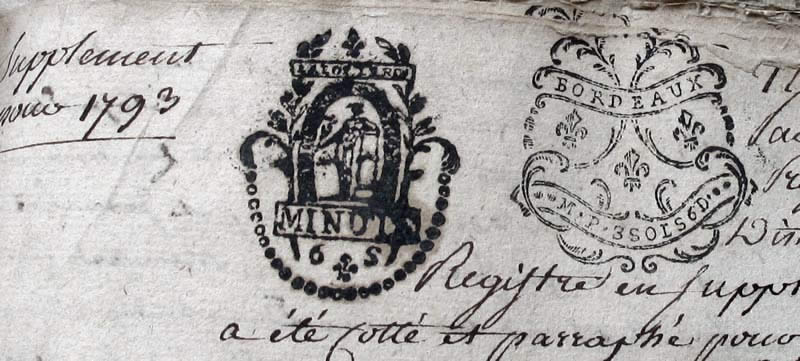 Supplement
pour 1793
MINOTE
6 S
BORDEAUX
M·P·3SOLS6D·
Registre en suppl
a été cotté et parraphé pour